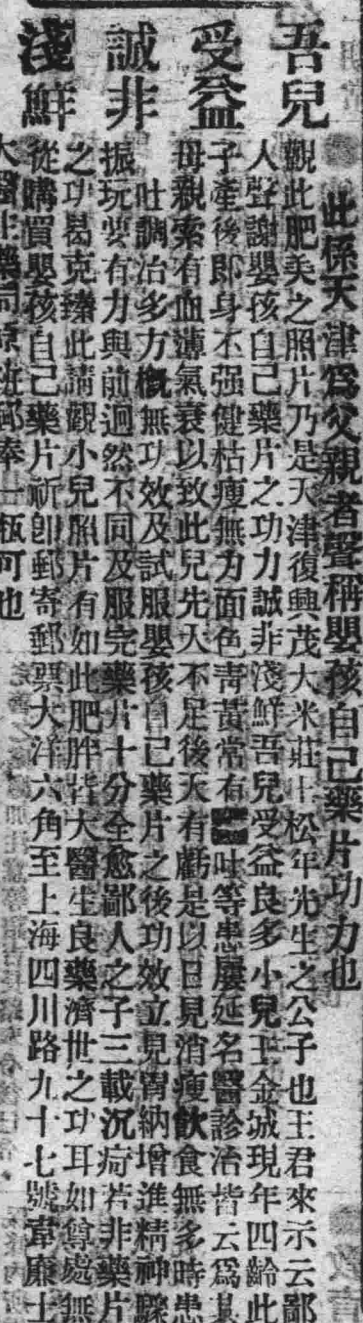 吾兒
受益
誠非
淺鮮
此係天津爲父親者聲稱嬰孩自己藥片功力也
觀此肥美之照片乃是天津復興茂大米莊王松年先生之公子也王君來示云鄙
人聲謝嬰孩自己藥片之功力誠非淺鮮吾兒受益良多小兒王金城現年四齡此
子產後即身不强健枯瘦無力面色靑黃常有吐等患屢延名醫診治皆云爲其
母親索有血薄氣衰以致此兒先天不足後天有虧是以日見消瘦飲食無多時患
吐調治多方槪無功效及試服嬰孩自己藥片之後功效立見胃納增進精神驟
振玩耍有力與前迥然不同及服完藥片十分全愈鄙人之子三載沉疴若非藥片
之功曷克臻此請觀小兒照片有如此肥胖皆大醫生良藥濟世之功耳如尊處無
從購買嬰孩自己藥片祈即郵寄郵票大洋六角至上海四川路九十七號韋廉士
大醫生藥局原班郵奉一瓶可也